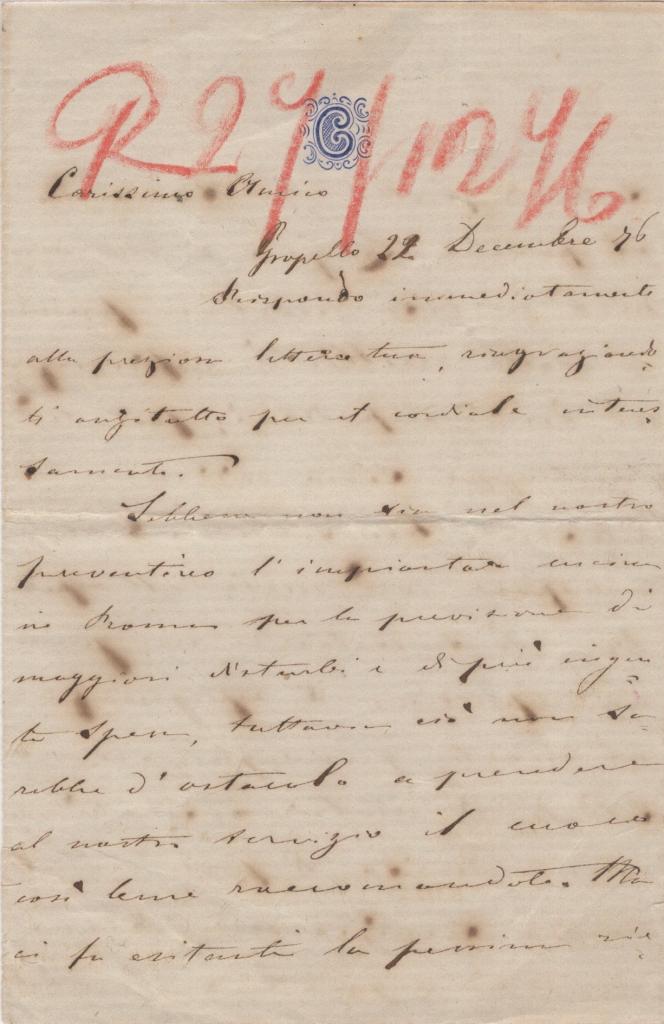 R 27/12 76
C
Carissimo Amico
Gropello 22 Decembre 76
Rispondo immediatamente
alla preziosa lettera tua, ringraziando=
ti anzitutto per il cordiale interes=
samento.
Sebbene non sia nel nostro
preventivo l'impiantare cucina
in Roma per la previsione di
maggiori disturbi e di più ingen=
te spesa, tuttavia ciò non sa=
rebbe d'ostacolo a prendere
al nostro servizio il cuoco
così bene raccomandato. Ma
ci fa esitanti la